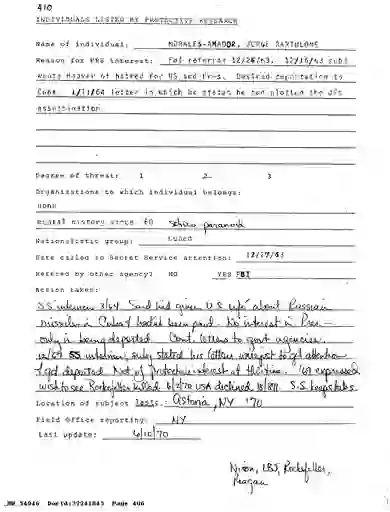 410
INDIVIDUALS LISTED BY PROTECTIVE RESEARCH
Name of individual: MORALES-AMADOR, JORGE BARTOLOME
Reason for PRS interest: FBI referral 12/26/63. 12/18/63 subj
wrote of hatred for US and Pres. Desired deportation to
Cuba. letter in which he states he had plotted the JFK
assassination
Degree of threat: 1 2 3
Organizations to which individual belongs:
none
Mental history since 60 schizo paranoid
Nationalistic group: Cuban
Date called to Secret Service attention: 12/27/63
Referred by other agency? NO YES FBI
Action taken:
SS interview 3/64 Said had given U.S. info about Russian
missiles in Cuba & hadn't been paid. No interest in Pres—
only in being deported. Cont. letters to govt agencies.
12/69 SS interview, subj stated his letters were just to get attention
& get deported. Not of protective interest at this time. '69 expressed
wish to see Rockefeller 6/2/70 USA declined S.S. keeps tabs.
Location of subject Astoria, NY '70
Field Office reporting: NY
Last update: 6/10/70
Nixon, LBJ, Rockefeller,
Reagan
DocId:32241843 Page 406